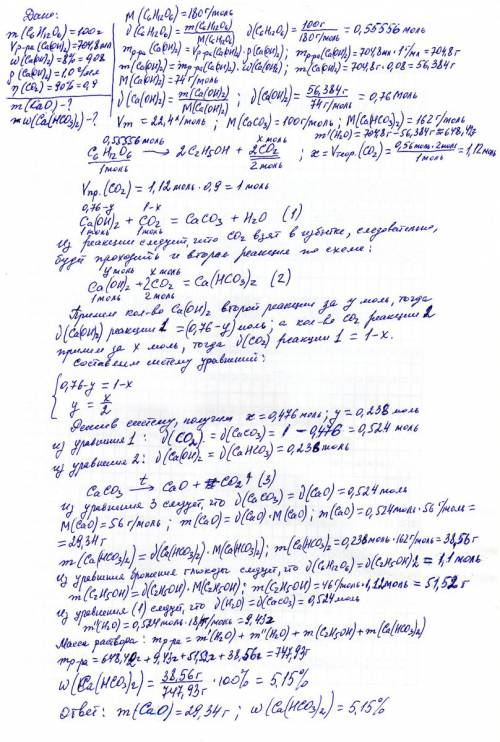 Дано:
m(C6H12O6)=100г
Vр-ра(Ca(OH)2)=704,8мл
w(Ca(OH)2)=8% 0,08
ρ(Ca(OH)2)=1,0 г/мл
η(CO2)=90% = 0,9
m(CaO)-?
w(Ca(HCO3)2)-?
M(C6H12O6)=180г/моль
ν(C6H12O6)= m(C6H12O6)/M(C6H12O6) ; ν(C6H12O6)= 100г/180г/моль =0,55556 моль
mр-ра(Ca(OH)2)=Vр-ра(Ca(OH)2)·ρ(Ca(OH)2); mр-ра(Ca(OH)2)=704,8мл·1г/мл=704,8г
m(Ca(OH)2)=mр-ра(Ca(OH)2)·w(Ca(OH)2); m(Ca(OH)2)=704,8г·0,08=56,384г
M(Ca(OH)2)=74 г/моль
ν(Ca(OH)2)= m(Ca(OH)2)/M(Ca(OH)2) ; ν(Ca(OH)2)= 56,384г/74 г/моль =0,76 моль
Vm=22,4л/моль; M(CaCO3)=100г/моль; M(Ca(HCO3)2)=162г/моль
m'(H2O)=704,8г-56,384г=648,42г
0,55556моль x моль
C6H12O6 → 2C2H5OH + 2CO2 ; x=νтеор.(CO2)= 0,56моль·2моль/1моль =1,12моль
1моль 2моль
νпр.(CO2)=1,12моль·0,9=1 моль
0,76-y 1-x
Ca(OH)2 + CO2 = CaCO3 + H2O (1)
1моль 1моль
Из реакции следует, что CO2 взят в избытке, следовательно,
будет проходить и вторая реакция по схеме:
y моль x моль
Ca(OH)2+2CO2 = Ca(HCO3)2 (2)
1моль 2моль
Примем кол-во Ca(OH)2 второй реакции за y моль, тогда
ν(Ca(OH)2) реакции 1 =(0,76-y) моль; а кол-во CO2 реакции 2
примем за x моль, тогда ν(CO2) реакции 1 = 1-x.
Составляем систему уравнений:
{0,76-y = 1-x
y = x/2
Решив систему, получим x=0,476моль; y=0,238 моль
из уравнения 1: ν(CO2)=ν(CaCO3)= 1-0,476=0,524 моль
из уравнения 2: ν(Ca(OH)2=ν(Ca(HCO3)=0,238моль
CaCO3 t→ CaO + CO2↑ (3)
из уравнения 3 следует, что ν(CaCO3)=ν(CaO)=0,524 моль
M(CaO)=56 г/моль; m(CaO)=ν(CaO)·M(CaO); m(CaO)=0,524моль·56 г/моль=
=29,34г
m(Ca(HCO3)2)=ν(Ca(HCO3)2)·M(Ca(HCO3)2); m(Ca(HCO3)2=0,238моль·162г/моль=38,56г
из уравнения брожения глюкозы следует, что ν(C2H5OH)=2ν(C6H12O6)=1,1 моль
m(C2H5OH)=ν(C2H5OH)·M(C2H5OH); m(C2H5OH)=46г/моль·1,12моль=51,52г
из уравнения (1) следует, что ν(H2O)=ν(CaCO3)=0,524моль
m"(H2O)=0,524моль·18г/моль=9,43г
Масса раствора: mр-ра=m'(H2O)+m"(H2O)+m(C2H5OH)+m(Ca(HCO3)2)
mр-ра=648,42г+9,43г+51,52г+38,56г=747,93г
w(Ca(HCO3)2)= 38,56г/747,93г ·100%=5,15%
Ответ: m(CaO)=29,34г; w(Ca(HCO3)2)=5,15%